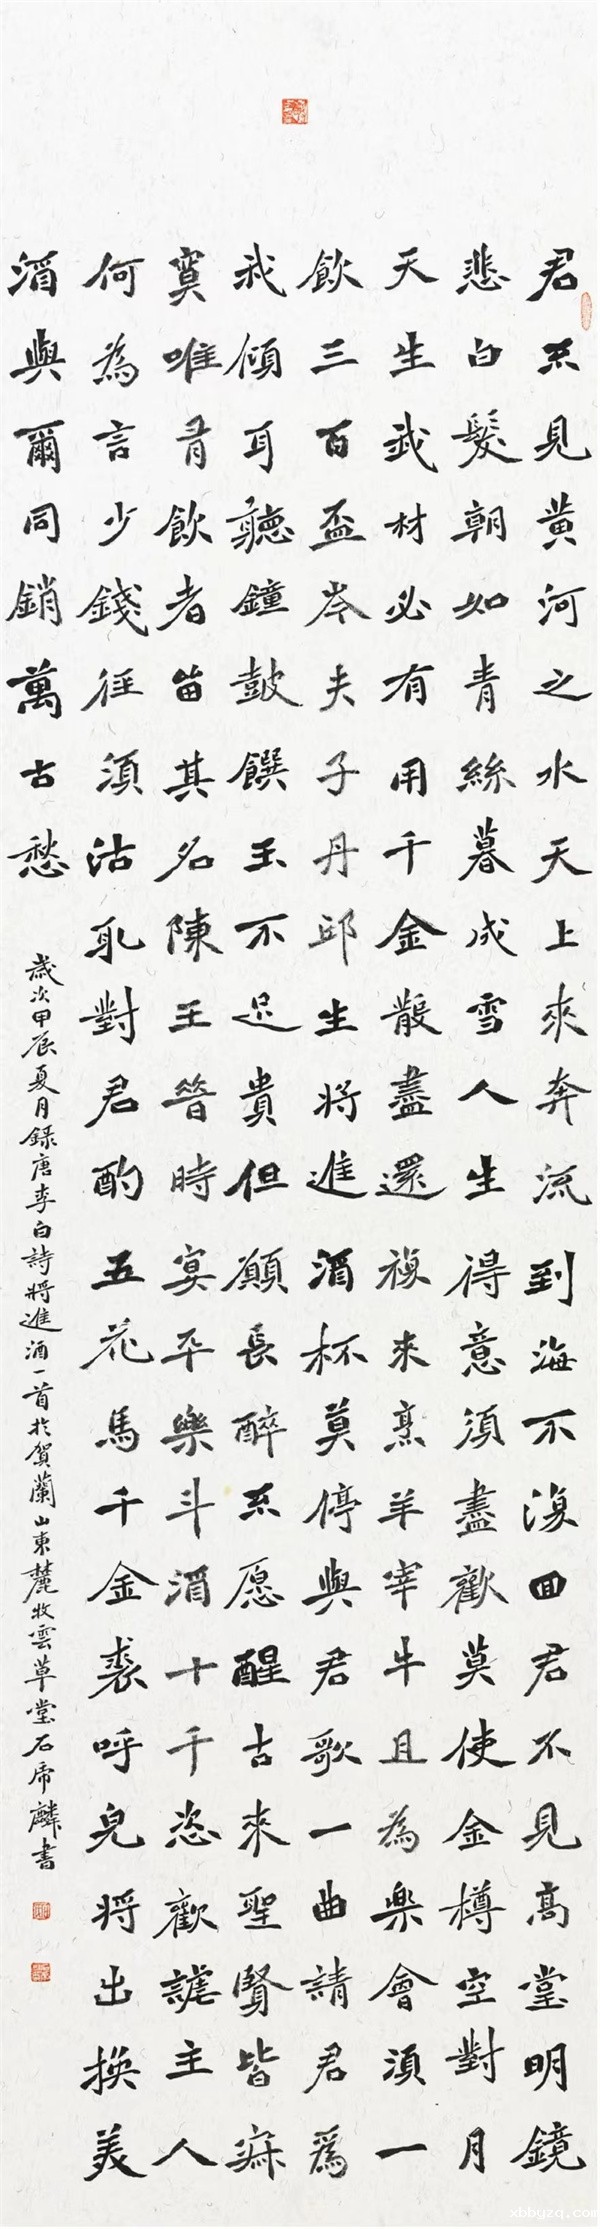 君不見黄河之水天上來奔流到海不復回君不見高堂明鏡
悲白髮朝如青絲暮成雪人生得意須盡歡莫使金樽空對月
天生我材必有用千金散盡還復来烹羊宰牛且為樂會須一
飲三百盃岑夫子丹邱生將進酒杯莫停與君歌一曲請君爲
我傾耳聽鐘鼓饌玉不足貴但願長醉不愿醒古來聖賢皆寂
寞唯有飲者留其名陳王昔時宴平樂斗酒十千恣歡謔主人
何為言少錢徑須沽取對君酌五花馬千金裘呼兒將出換美
酒與爾同銷萬古愁
歲次甲辰夏月録唐李白詩將進酒一首於賀蘭山東麓牧雲草堂石麟書
xbbyzq.com